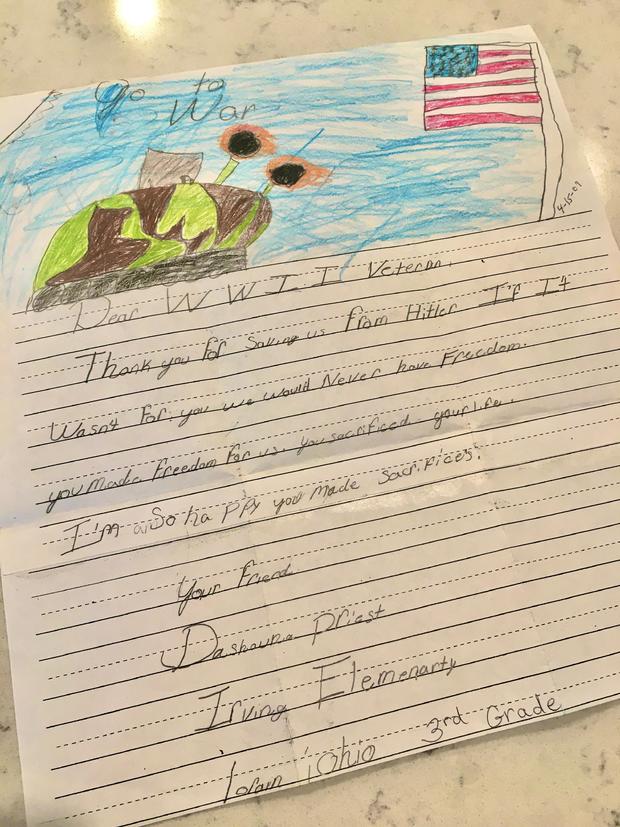 Go to
War
4-15-09
Dear WWII Veteran.
Thank you for saving us from Hitler If It
Wasnt for you we would Never have Freedom.
you made freedom for us. you sacrificed your life.
I'm so happy you made sacrifices.
Your friend
Dashauna Priest
Irving Elemenarty
lorain, Ohio 3rd Grade